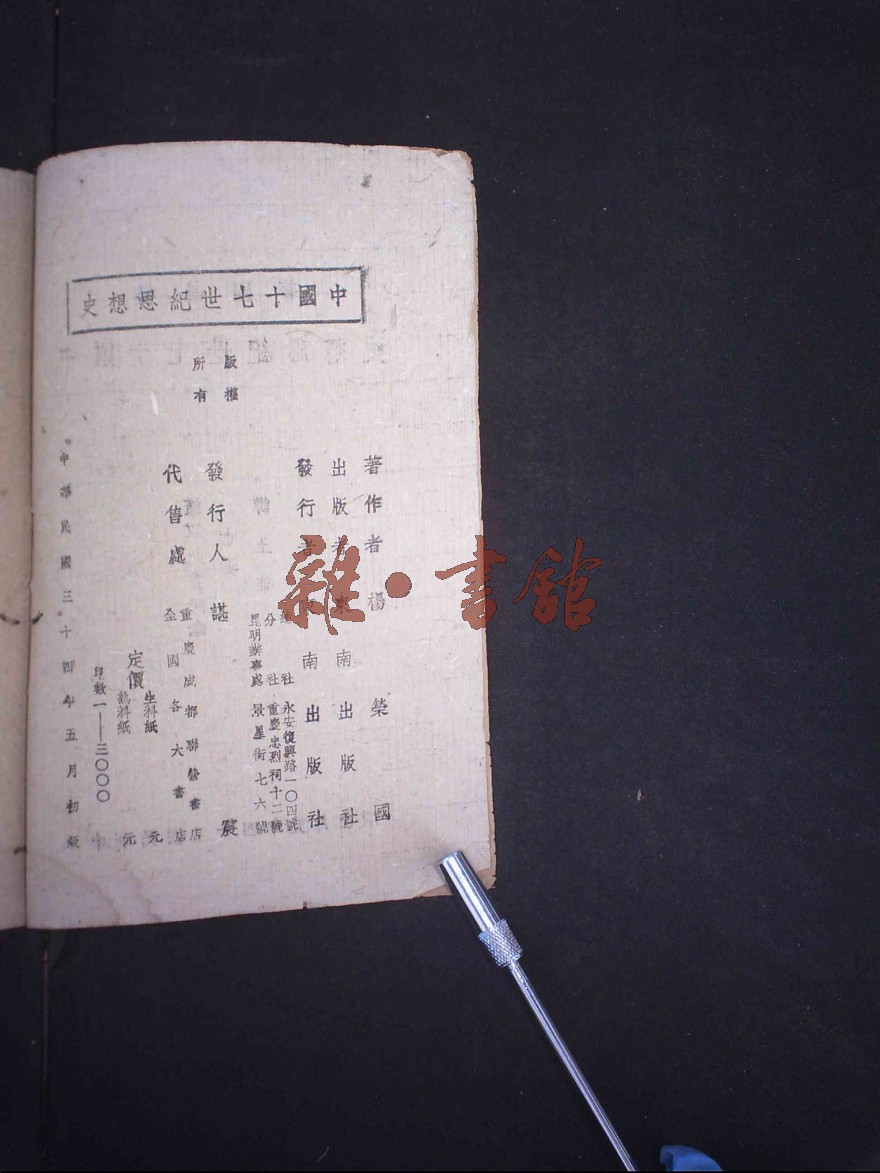 中國十七世紀思想史
版權
所有
著作者 楊榮國
出版者 東南出版社
發行者 東南出版社
總社 永安復興路一〇四號
分社 重慶忠烈祠十二號
昆明辦事處 景星街七六號
發行人 諶震
代售處 重慶成都聯營書店
全國各大書店
定價 生料紙 元
熟料紙 元
印數一——三〇〇〇
中華民國三十四年五月初版
雜·書館